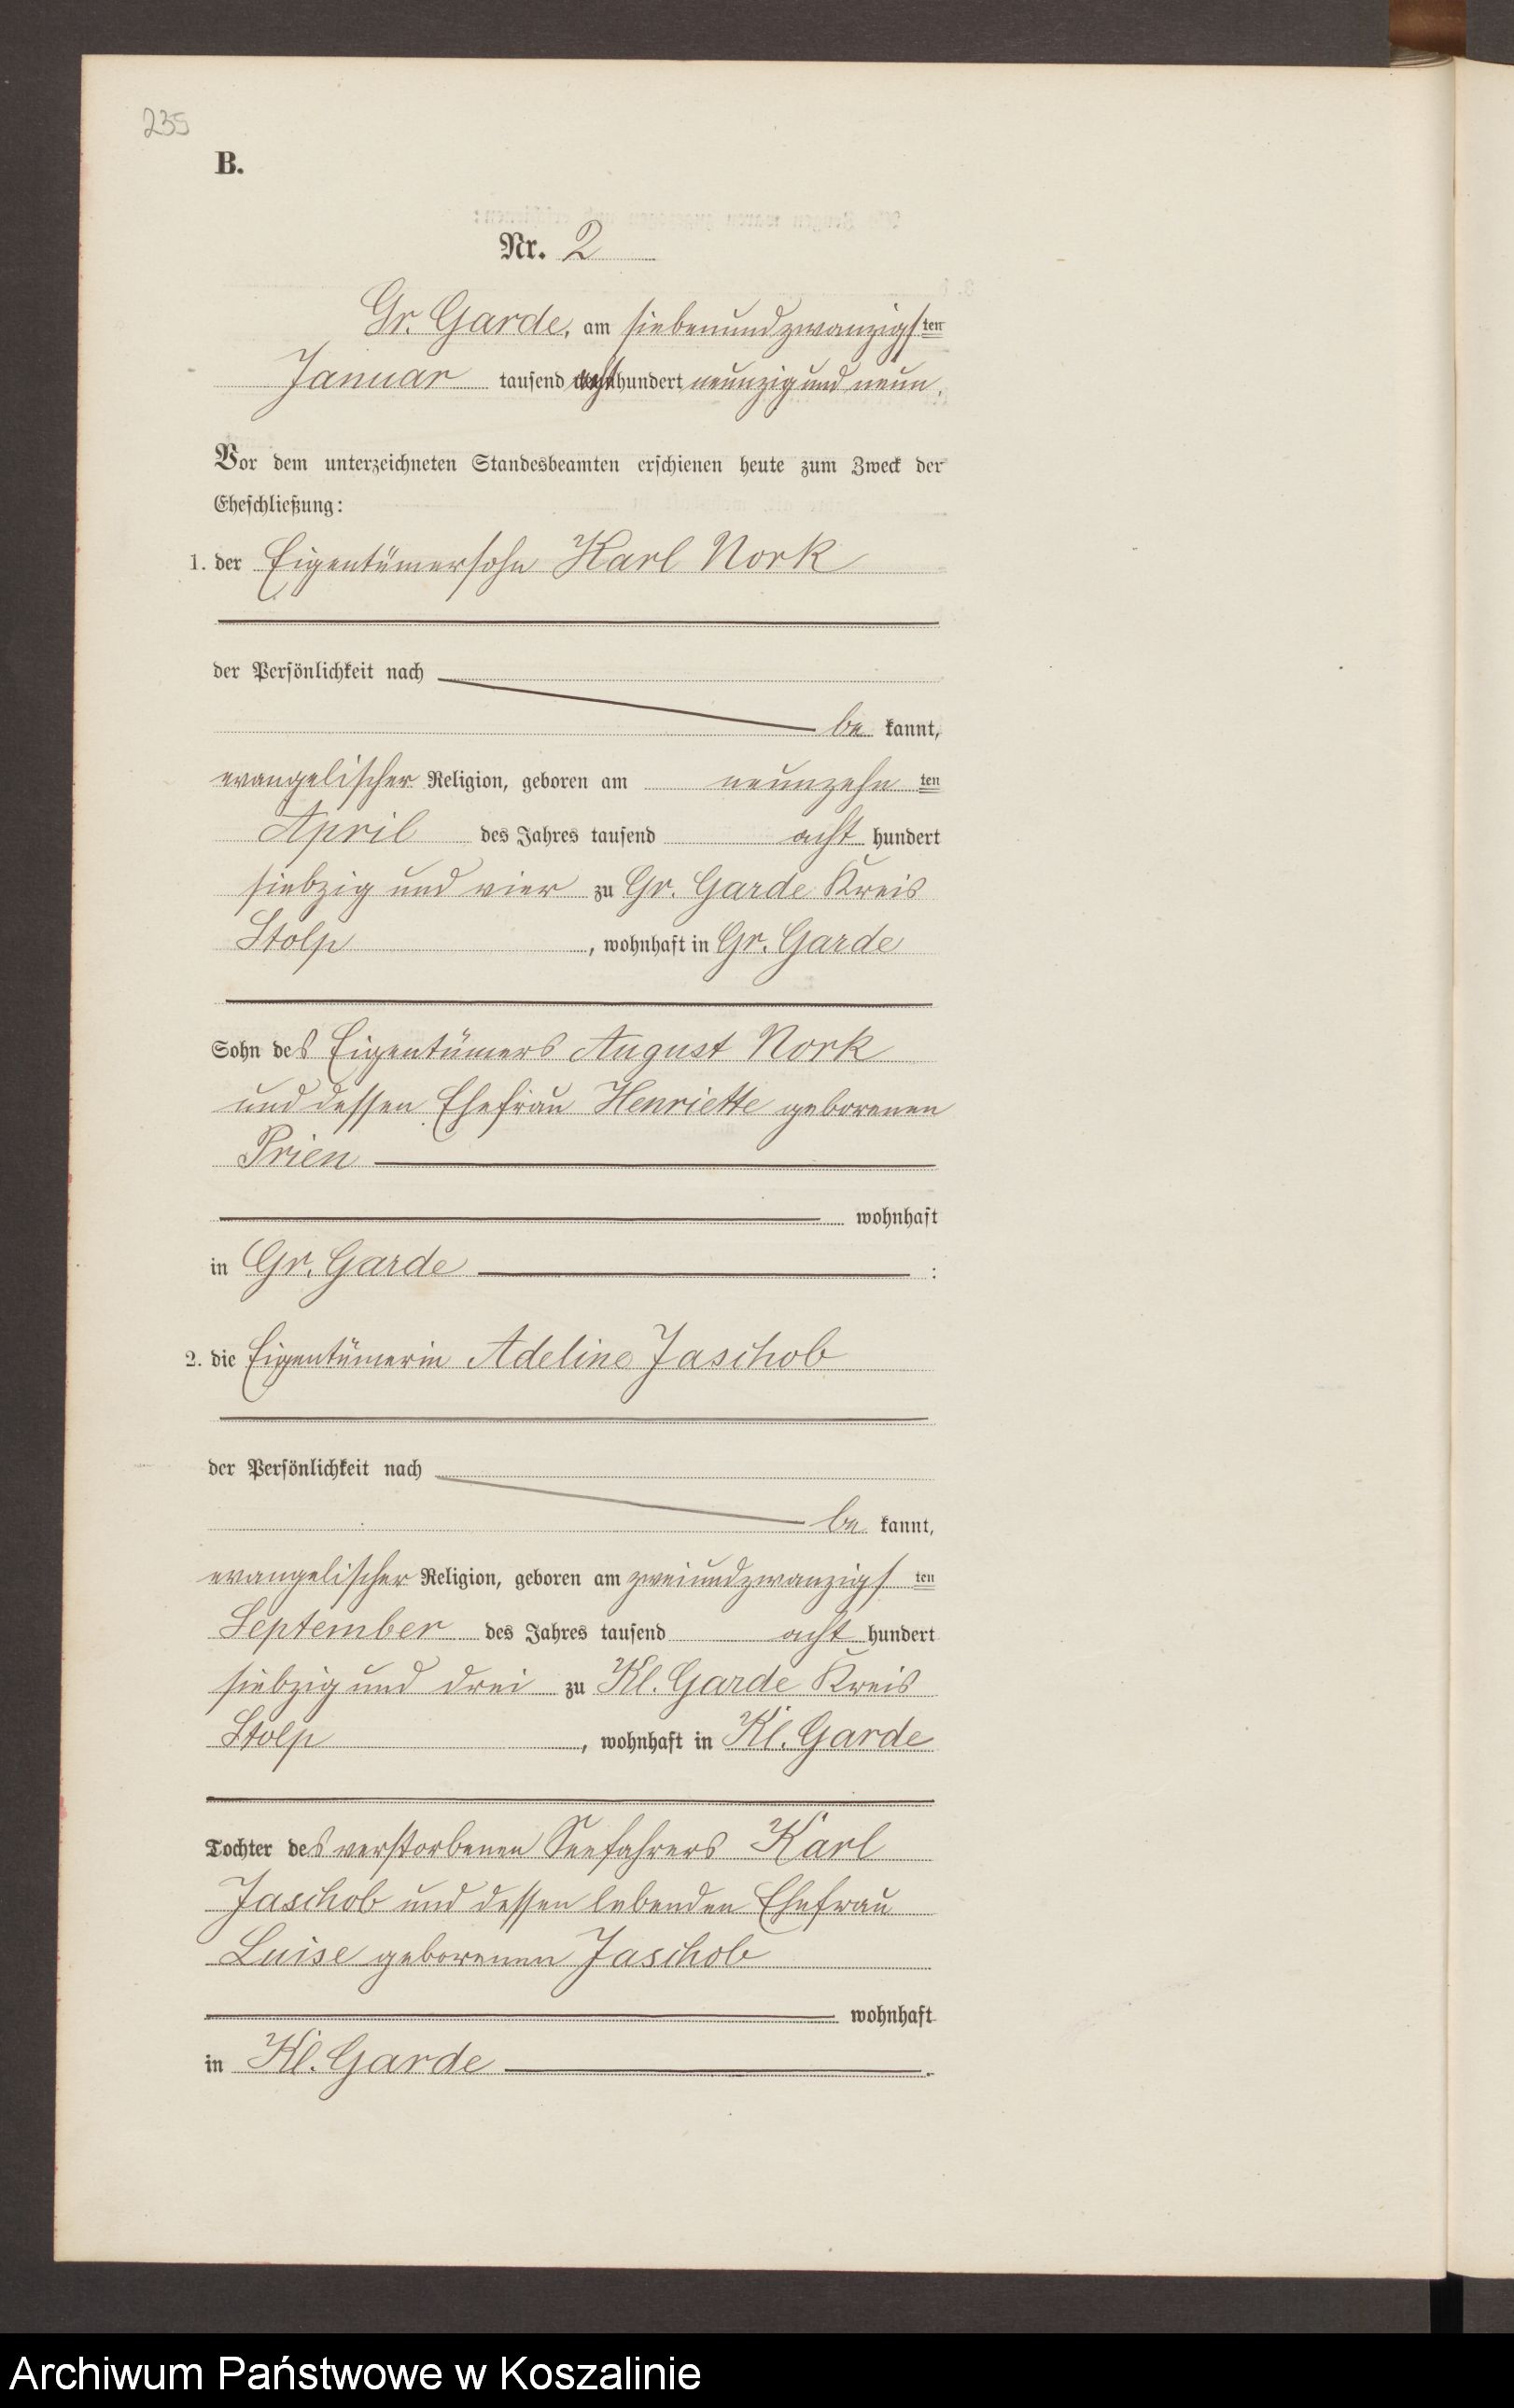 235
B.
Nr. 2
Gr. Garde, am siebenundzwanzigsten
Januar tausend achthundert neunzig und neun.
Vor dem unterzeichneten Standesbeamten erschienen heute zum Zweck der
Eheschließung:
1. der Eigentümersohn Karl Nork
der Persönlichkeit nach
be kannt,
evangelischer Religion, geboren am neunzehn ten
April des Jahres tausend acht hundert
siebzig und vier zu Gr. Garde Kreis
Stolp , wohnhaft in Gr. Garde
Sohn des Eigentümers August Nork
und dessen Ehefrau Henriette geborenen
Prien
wohnhaft
in Gr. Garde :
2. die Eigentümerin Adeline Jaschob
der Persönlichkeit nach
be kannt,
evangelischer Religion, geboren am zweiundzwanzigs ten
September des Jahres tausend acht hundert
siebzig und drei zu Kl. Garde Kreis
Stolp , wohnhaft in Kl. Garde
Tochter des verstorbenen Seefahrers Karl
Jaschob und dessen lebenden Ehefrau
Luise geborenen Jaschob
wohnhaft
in Kl. Garde .
Archiwum Państwowe w Koszalinie